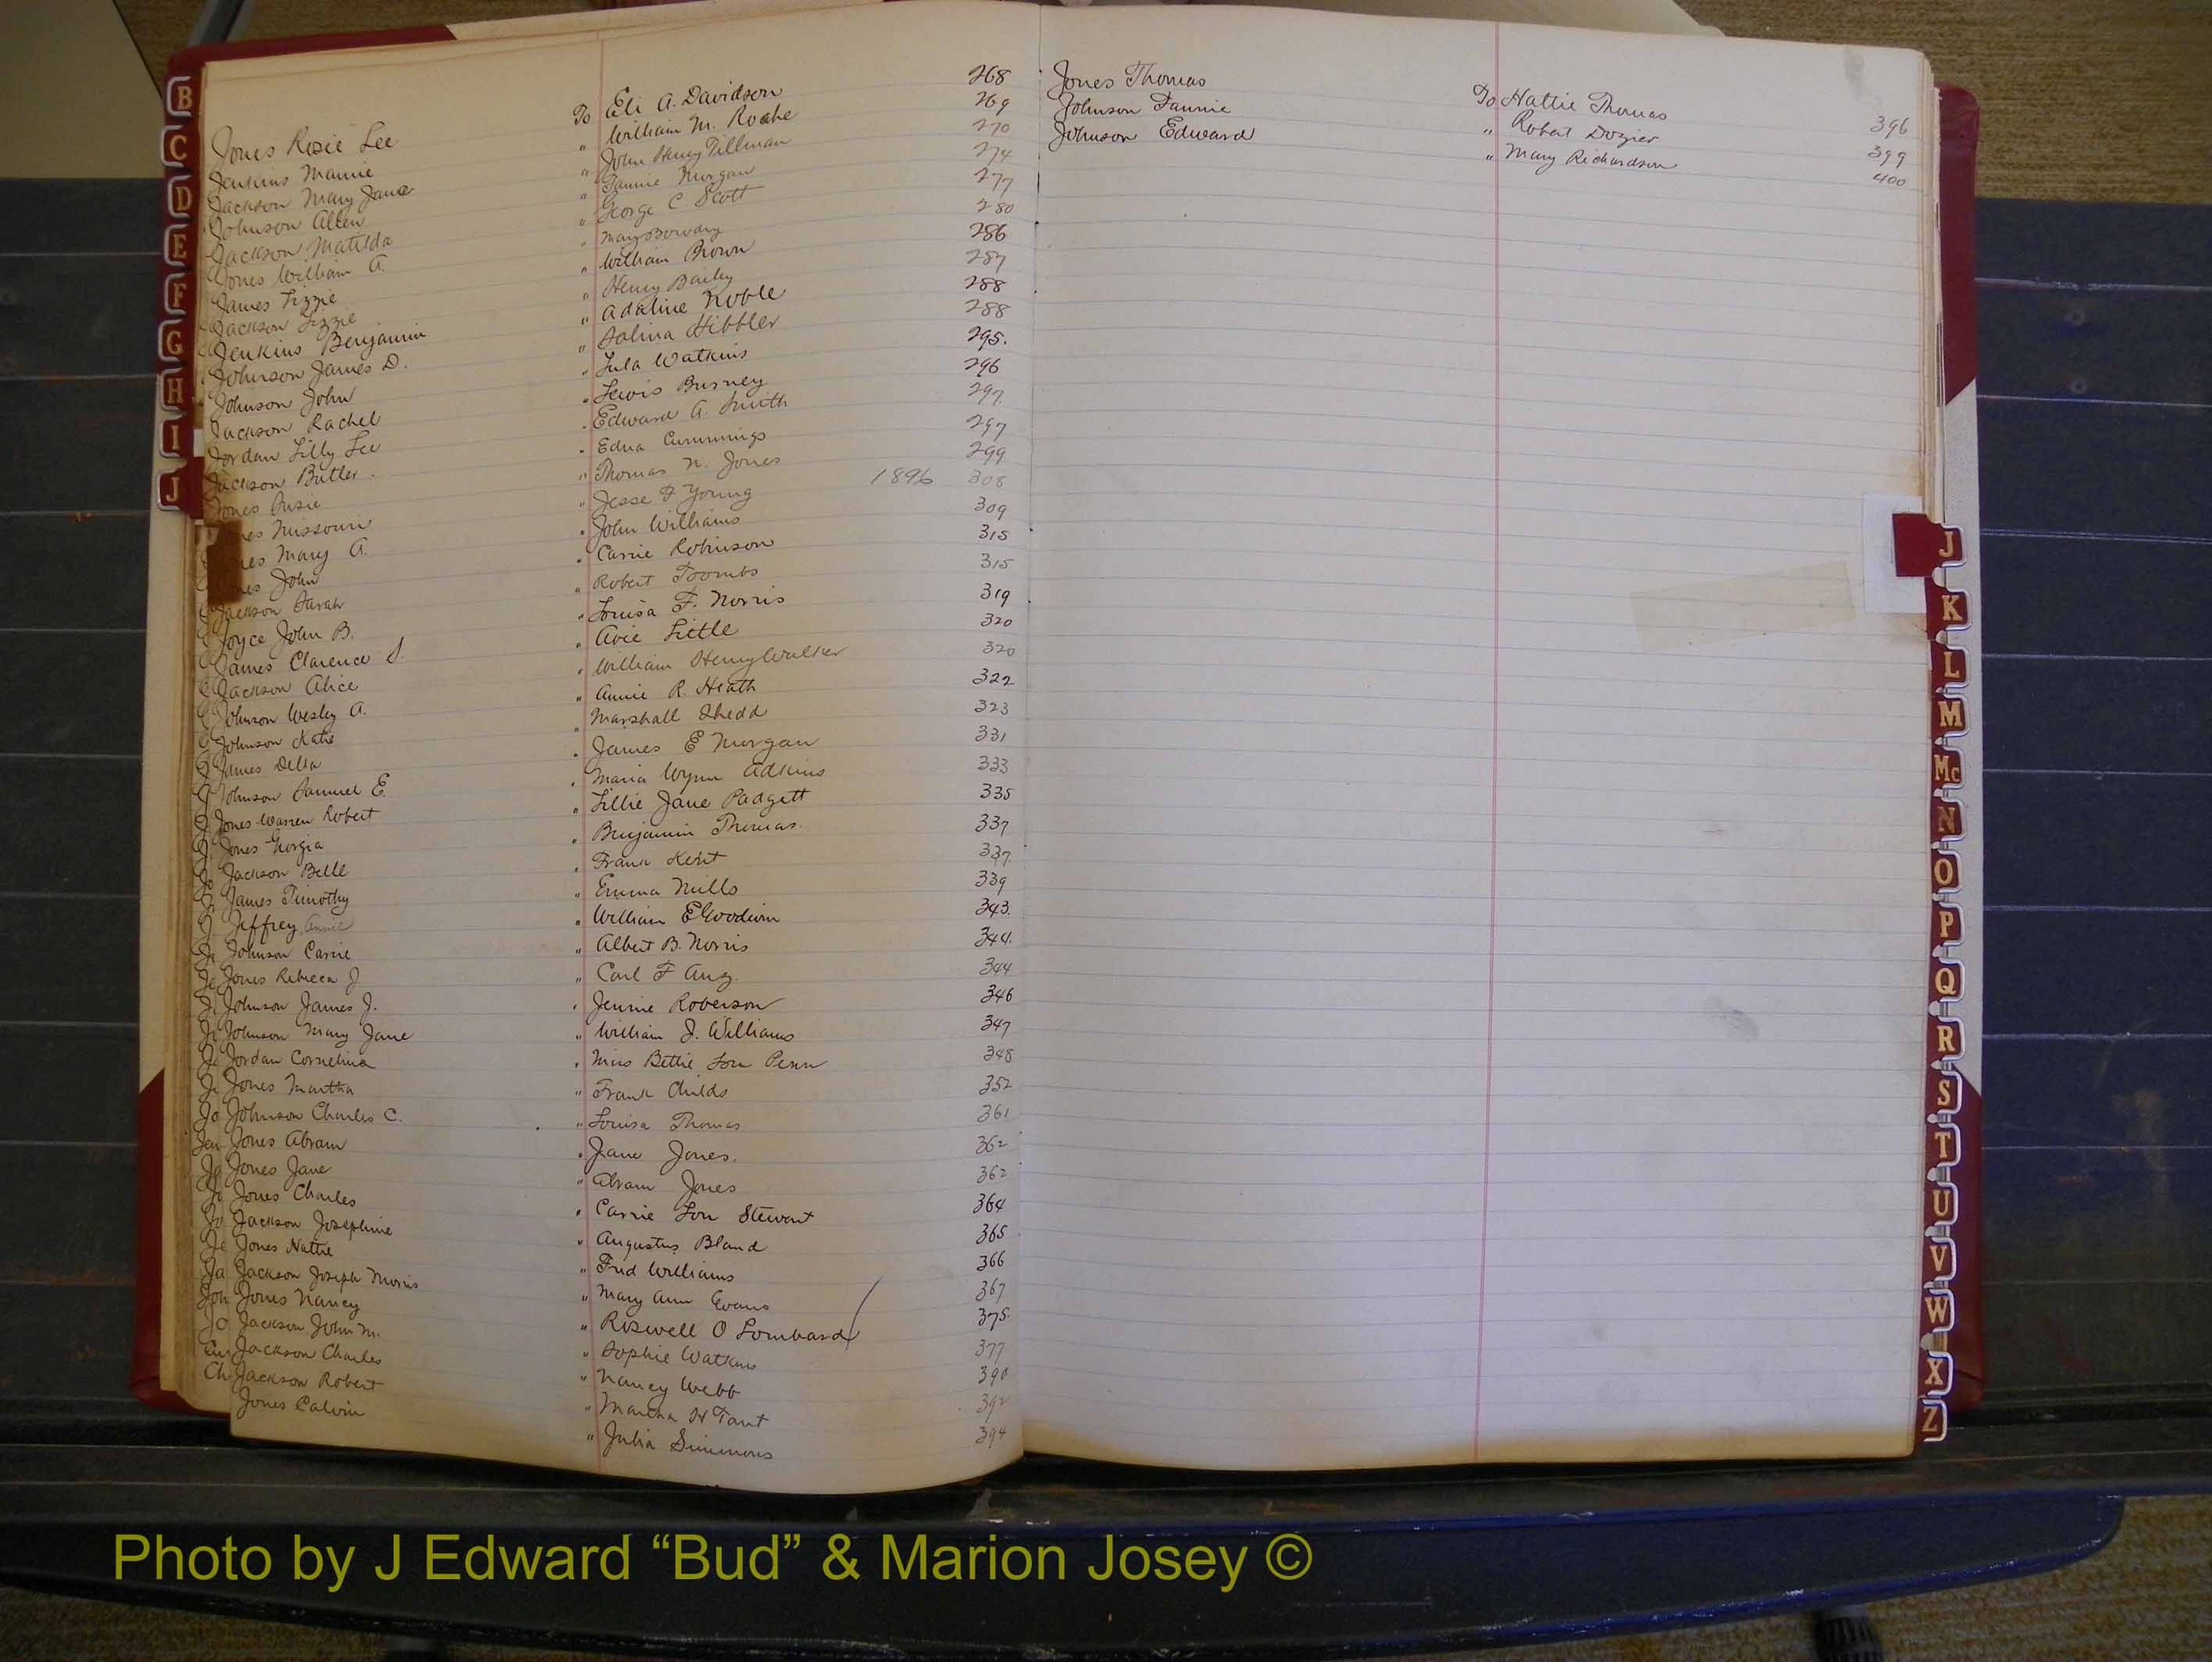 B
C
D
E
F
G
H
I
J
Jones Rosie Lee To Eli A. Davidson 268
Jenkins Mamie " William M. Roche 269
Jackson Mary Jane " John Henry Tillman 270
Johnson Allen " Fannie Morgan 274
Jackson Matilda " George C. Scott 277
Jones William A. " Mary Bowdry 280
James Lizzie " William Brown 286
Jackson Lizzie " Henry Baily 287
Jenkins Benjamin " Adaline Noble 288
Johnson James D. " Salina Hibbler 288
Johnson John " Lula Watkins 295.
Jackson Rachel " Lewis Burney 296
Jordan Lilly Lee " Edward A. Smith 297
Jackson Butler. " Edna Cummings 297
Jones Susie " Thomas N. Jones 299
nes Missouri " Jesse F Young 1896 308
nes Mary A. " John Williams 309
nes John " Carrie Robinson 315
Jackson Sarah " Robert Toombs 315
Joyce John B. " Louisa F. Norris 319
James Clarence S. " Avie Little 320
Jackson Alice " William Henry Walker 320
Johnson Wesley A. " Annie R. Heath 322
Johnson Katie " Marshall Shedd 323
James Della " James E Morgan 331
Johnson Samuel E. " Maria Wynn Adkins 333
Jones Warren Robert " Lillie Jane Padgett 335
Jones Georgia " Benjamin Thomas. 337
Jackson Belle " Frank Kent 337
James Timothy " Emma Mills 339
Jeffrey Annie " William E Goodwin 343.
Johnson Carrie " Albert B. Norris 344.
Jones Rebecca J " Carl F Aug. 344
Johnson James J. " Jennie Roberson 346
Johnson Mary Jane " William J. Williams 347
Jordan Cornelius " Miss Bettie Lou Penn 348
Jones Martha " Frank Childs 352
Johnson Charles C. " Louisa Thomas 361
Jones Abram " Jane Jones. 362
Jones Jane " Abram Jones 362
Jones Charles " Carrie Lou Stewart 364
Jackson Josephine " Augustus Bland 365
Jones Hattie " Fred Williams 366
Jackson Joseph Morris " Mary Ann Evans 367
Jones Nancy " Roswell O Lombard 375.
Jackson John M. " Sophie Watkins 377
Jackson Charles " Nancy Webb 390
Jackson Robert " Martha H Tant 392
Jones Calvin " Julia Simmons 394
Jones Thomas To Hattie Thomas 396
Johnson Fannie " Robert Dozier 399
Johnson Edward " Mary Richardson 400
J
K
L
M
Mc
N
O
P
Q
R
S
T
U
V
W
X
Z
Photo by J Edward “Bud” & Marion Josey ©